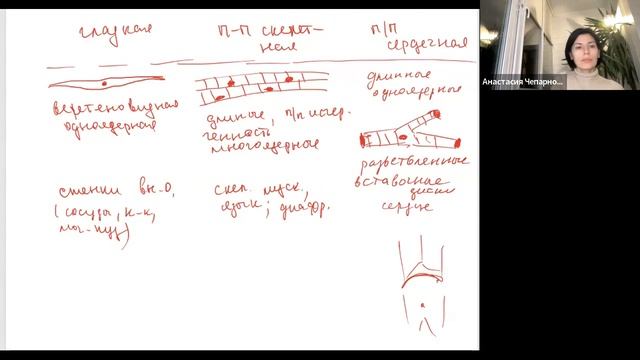 гладкая
п-п скелет-
ная
п/п
сердечная
веретеновидная
одноядерная
длинные, п/п исчер-
ченность
многоядерные
длинные
одноядерные
разветвленные
вставочные
диски
сердце
стенки вн-о.
(сосуды, к-к,
моч-пуз)
скел. муск.,
язык; диафр.
Анастасия Чепарно...